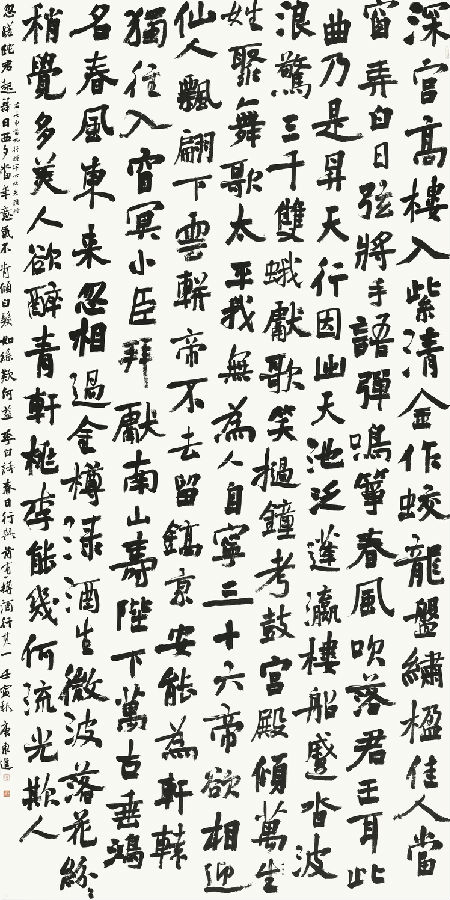 深宮高樓入紫清金作蛟龍盤繡楹佳人當
窗弄白日弦將手語彈鳴箏春風吹落君王耳此
曲乃是昇天行因出天池泛蓬瀛樓船蹙沓波
浪驚三千雙蛾獻歌笑撾鐘考鼓宮殿傾萬生
姓聚舞歌太平我無為人自寧三十六帝欲相迎
仙人飄翩下雲軿帝不去留鎬京安能為軒轅
獨往入窅冥小臣拜獻南山壽陛下萬古垂鴻
名春風東来忽相過金樽渌酒生微波落花紛〻
稍覺多美人欲醉青軒桃李能幾何流光欺人
忽蹉跎君起舞日西夕當年意氣不肯傾白髮如絲歎何益 李白詩春日行與前有樽酒行其一 壬寅秋